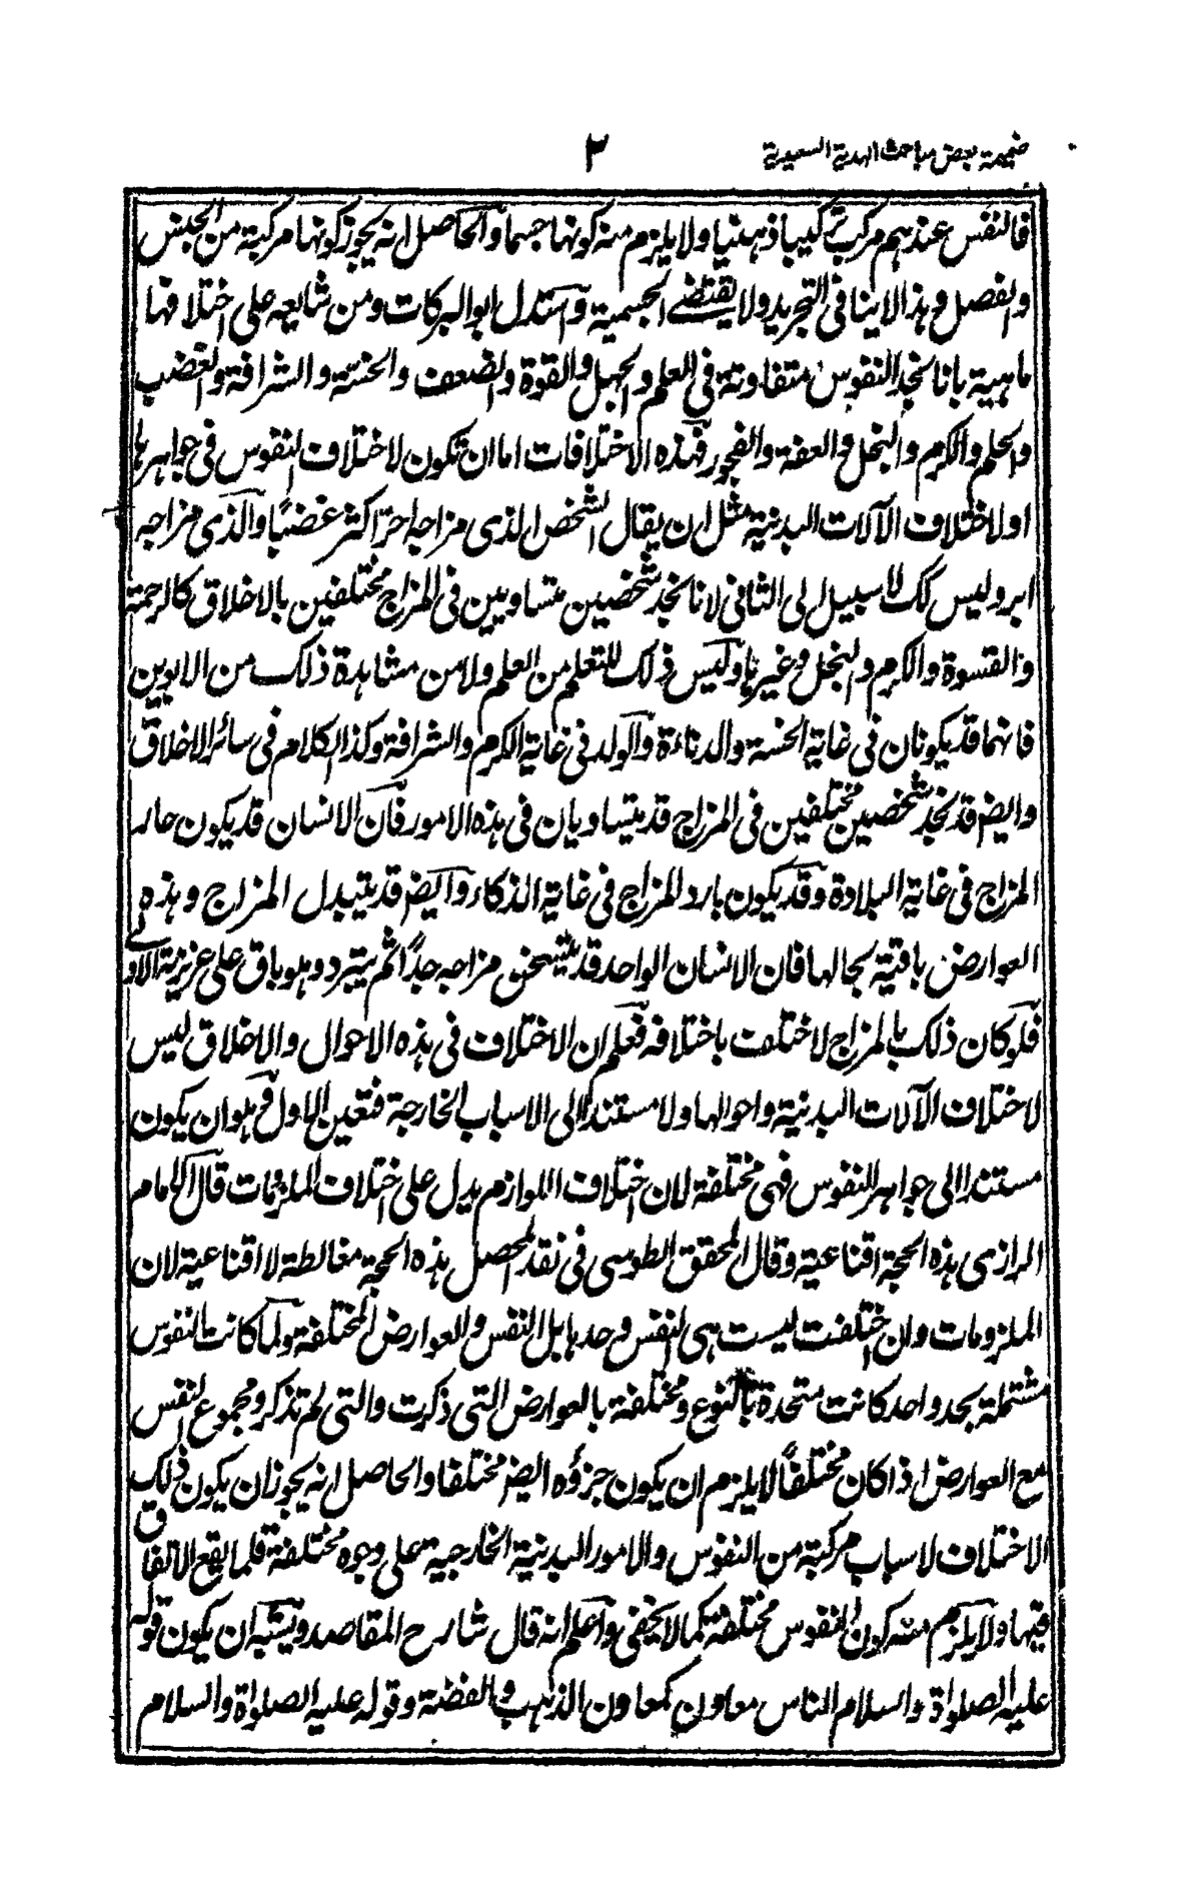 ضميمة بعض مباحث الهدية السعيدية
٣
فالنفس عندهم مركب تركيبا ذهنيا ولا يلزم منه كونها جسما والحاصل انه يجوز كونها مركبة من الجنس
والفصل وهذا لا ينافى التجريد ولا يقتضے الجسمية واستدل ابو البركات ومن شايعه على اختلافها
ماهية بانا نجد النفوس متفاوتة فى العلم والجهل والقوة والضعف والخسة والشرافة والغضب
والحلم والكرم والبخل والعفة والفجور فهذه الاختلافات اما ان تكون لاختلاف النفوس فى جواهرها
او لاختلاف الآلات البدنية مثل ان يقال الشخص الذى مزاجه احر اكثر غضبا والذى مزاجه
ابرد وليس كك لا سبيل الى الثانى لانا نجد شخصين متساويين فى المزاج مختلفين بالاخلاق كالرحمة
والقسوة والكرم والبخل وغيرها وليس ذلك للتعلم من العلم ولا من مشاهدة ذلك من الابوين
فانهما قد يكونان فى غاية الخسة والدناءة والولد فى غاية الكرم والشرافة وكذا الكلام فى سائر الاخلاق
وايضا قد نجد شخصين مختلفين فى المزاج قد يتساويان فى هذه الامور فان الانسان قد يكون حار
المزاج فى غاية البلادة وقد يكون بارد المزاج فى غاية الذكاء وايضا قد يتبدل المزاج وهذه
العوارض باقية بحالها فان الانسان الواحد قد يتسخن مزاجه جدا ثم يتبرد وهو باق على غريزية الاولى
فلو كان ذلك بالمزاج لاختلفت باختلافه فعلم ان الاختلاف فى هذه الاحوال والاخلاق ليس
لاختلاف الآلات البدنية واحوالها ولا مستندا الى الاسباب الخارجة فتعين الاول وهو ان يكون
مستندا الى جواهر النفوس فهى مختلفة لان اختلاف اللوازم يدل على اختلاف الملزومات قال الامام
الرازى هذه الحجة اقناعية وقال المحقق الطوسى فى نقد المحصل هذه الحجة مغالطة لا اقناعية لان
الملزومات وان اختلفت ليست هى النفس وحدها بل النفس والعوارض المختلفة ولما كانت النفوس
مشتملة بحد واحد كانت متحدة بالنوع ومختلفة بالعوارض التى ذكرت والتى لم تذكر ومجموع النفس
مع العوارض اذا كان مختلفا لا يلزم ان يكون جزؤه ايضا مختلفا والحاصل انه يجوز ان يكون ذلك
الاختلاف لاسباب مركبة من النفوس والامور البدنية الخارجية على وجوه مختلفة قلما يقع الاتفاق
فيها ولا يلزم منه كون النفوس مختلفة كما لا يخفى واعلم انه قال شارح المقاصد ويشبه ان يكون قوله
عليه الصلواة والسلام الناس معاون كمعاون الذهب والفضة وقوله عليه الصلواة والسلام